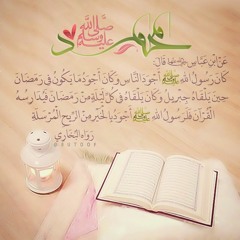 محمد ﷺ
عَنِ ابْنِ عَبَّاسٍ رضي الله عنهما قَالَ
كَانَ رَسُولُ اللهِ ﷺ أَجْوَدَ النَّاسِ وَكَانَ أَجْوَدُ مَا يَكُونُ فِي رَمَضَانَ
حِينَ يَلْقَاهُ جِبْرِيلُ وَكَانَ يَلْقَاهُ فِي كُلِّ لَيْلَةٍ مِنْ رَمَضَانَ فَيُدَارِسُهُ
الْقُرْآنَ فَلَرَسُولُ اللهِ ﷺ أَجْوَدُ بِالْخَيْرِ مِنَ الرِّيحِ الْمُرْسَلَةِ
رَوَاهُ الْبُخَارِي